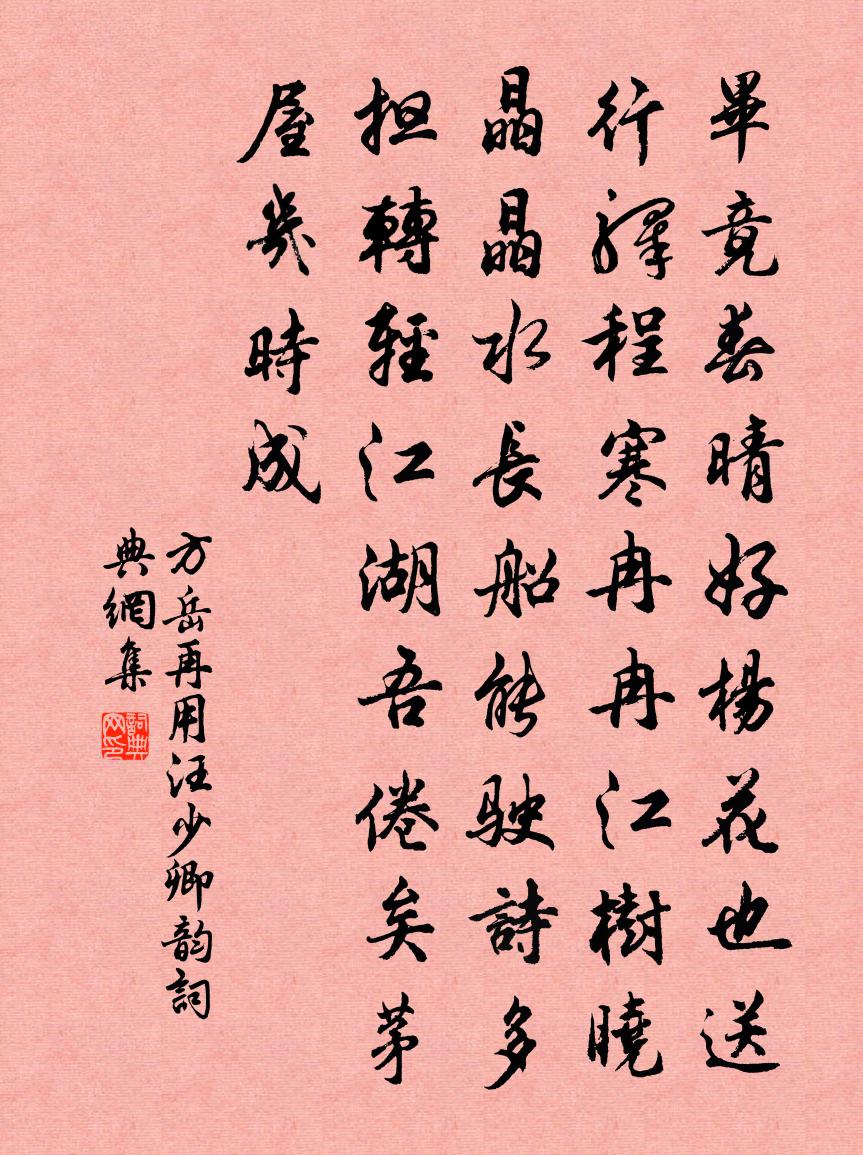 畢竟春晴好楊花也送
行驛程寒冉冉江樹曉
晶晶水長船能駛詩多
担轉輕江湖吾倦矣茅
屋幾時成
方岳再用汪少卿韵詞
典網集
詞典网印